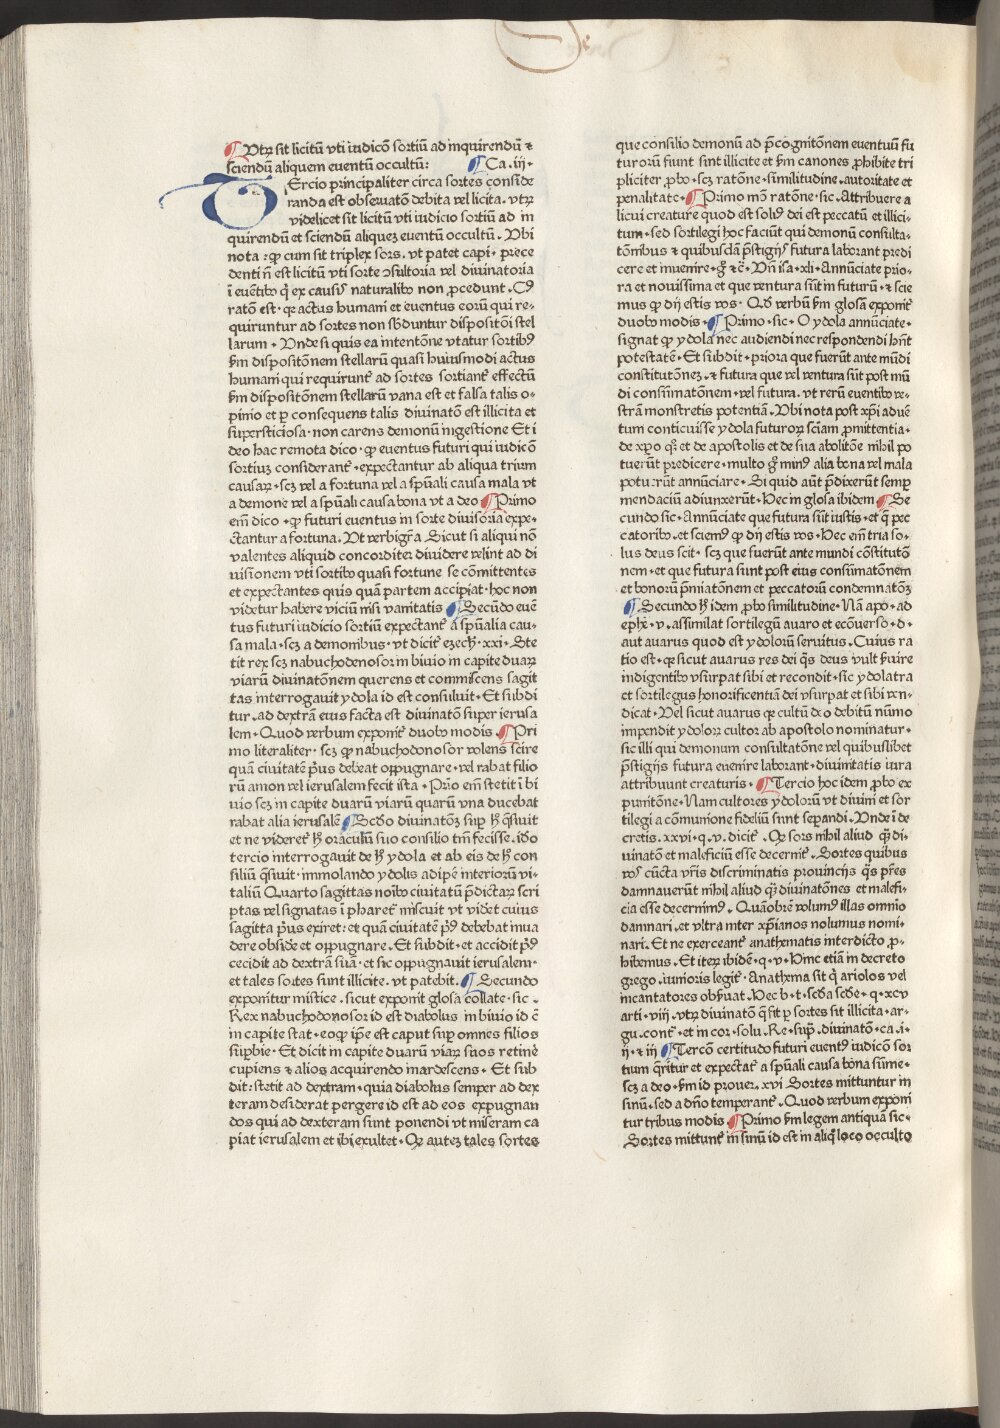 ¶ Vtrꝫ sit licitū vti iudicō sortiū ad inquirendū ⁊
sciendū aliquem euentū occultū: ¶ Ca. iij.
TErcio principaliter circa sortes conside
randa est obseruatō debita vel licita. vtrꝫ
videlicet sit licitū vti iudicio sortiū ad in
quirendū et sciendū aliqueꝫ euentū occultū. Vbi
nota: ꝙ cum sit triplex sors. vt patet capi. prece
denti nō est licitū vti sorte ↄsultoria vel diuinatoria
ī euētibꝰ q̄ ex causis naturalibꝰ non ꝓcedunt. Cꝰ
ratō est. qꝛ actus humani et euentus eorū qui re-
quiruntur ad sortes non sbduntur dispositōi stel
larum. Vnde si quis ea intentōne vtatur sortibꝰ
ẜm dispositōnem stellarū quasi huiusmodi actus
humani qui requirunt̄ ad sortes sortiant̄ effectū
ẜm dispositōnem stellarū vana est et falsa talis o-
pinio et ꝑ consequens talis diuinatō est illicita et
supersticiosa. non carens demonū ingestione Et i
deo hac remota dico. ꝙ euentus futuri qui iudicō
sortiuꝫ considerant̄. expectantur ab aliqua trium
causaꝝ. scꝫ vel a fortuna vel a spūali causa mala vt
a demone vel a spūali causa bona vt a deo ¶ Primo
em̄ dico. ꝙ futuri euentus in sorte diuisoria expe-
ctantur a fortuna. Vt verbigr̄a Sicut si aliqui nō
valentes aliquid concorditer diuidere velint ad di
uisionem vti sortibꝰ quasi fortune se cōmittentes
et expectantes quis quā partem accipiat. hoc non
videtur habere viciū nisi vanitatis ¶ Secūdo euē
tus futuri iudicio sortiū expectant̄ a spūalia cau-
sa mala. scꝫ a demonibus. vt dicit̄ ezech̄. xxi. Ste
tit rex scꝫ nabuchodonosor in biuio in capite duaꝝ
viarū diuinatōnem querens et commiscens sagit
tas interrogauit ydola id est consuluit. Et subdi
tur. ad dextrā eius facta est diuinatō super ierusa
lem. Quod verbum exponit̄ duobꝰ modis. ¶ Pri
mo literaliter. scꝫ ꝙ nabuchodonosor volens scire
quā ciuitatē prꝰus debeat oppugnare. vel rabat filio
rū amon vel ierusalem fecit ista. Prīo em̄ stetit ī bi
uio scꝫ in capite duarū viarū quarū vna ducebat
rabat alia ierusalē ¶ Scdo diuinatōꝫ suꝑ h̄ q̄siuit
et ne videret̄ h̄ oraculū suo consilio tm̄ fecisse. ido
tercio interrogauit de h̄ ydola et ab eis de h̄ con
siliū q̄siuit. immolando ydolis adipē interiorū vi-
taliū Quarto sagittas noībꝰ ciuitatū p̄dictaꝝ scri
ptas vel signatas ī pharetr̄ miscuit vt videt cuius
sagitta pꝰus exiret: et quā ciuitatē pꝰ debebat inua
dere obside et oppugnare. Et subdit. et accidit pꝰ
cecidit ad dextrā suā. et sic oppugnauit ierusalem.
et tales sortes sunt illicite. vt patebit. ¶ Secundo
exponitur mistice. sicut exponit glosa collate. sic.
Rex nabuchodonosor id est diabolus in biuio id ē
in capite stat. eoꝙ ip̄e est caput suꝑ omnes filios
suꝑbie. Et dicit in capite duarū viaꝝ suos retinē
cupiens & alios acquirendo inardescens. Et sub
dit: stetit ad dextram. quia diabolus semper ad dex
teram desiderat pergere id est ad eos expugnan
dos qui ad dexteram sunt ponendi vt miseram ca
piat ierusalem et ibi exultet. Qꝛ auteꝫ tales sortes
que consilio demonū ad p̄cognitōnem euentuū fu
turorū fiunt sint illicite et ẜm canones ꝓhibite tri
pliciter ꝓbo. scꝫ ratōne. similitudine. autoritate et
penalitate. ¶ Primo mō ratōne. sic. Attribuere a
licui creature quod est soliꝰ dei est peccatū et illici-
tum. sed sortilegi hoc faciūt qui demonū consulta-
tōnibus ⁊ quibusdā p̄stigijs futura laborant predi
cere et inuenire. gͦ ⁊c̄. Vn̄ isa. xli. Annūciate prio-
ra et nouissima et que ventura sūt in futurū. ⁊ scie
mus ꝙ dij estis vos. Qd̄ verbū ẜm glosā exponit̄
duobꝰ modis. ¶ Primo. sic. O ydola annūciate.
signat ꝙ ydola nec audiendi nec respondendi hn̄t
potestatē. Et subdit. priora que fuerūt ante mūdi
constitutōneꝫ. ⁊ futura que vel ventura sūt post mū
di consūmatōnem. vel futura. vt rerū euentibꝰ ve-
strā monstretis potentiā. Vbi nota post xp̄i aduē
tum conticuisse ydola futuroꝝ sciam ꝓmittentia.
de xp̄o qꝫ et de apostolis et de sua abolitōe nihil po
tuerūt predicere. multo gͦ minꝰ alia bona vel mala
poterūt annūciare. Si quid aūt p̄dixerūt semꝑ
mendaciū adiunxerūt. Hec in glosa ibidem ¶ Se
cundo sic. Annūciate que futura sūt iustis. et q̄ pec
catoribꝰ. et sciemꝰ ꝙ dij estis vos. Hec em̄ tria so-
lus deus scit. scꝫ que fuerūt ante mundi cōstitutō
nem. et que futura sunt post eius consūmatōnem
et bonorū p̄miatōnem et peccatorū condemnatōꝫ
¶ Secundo h̄ idem ꝓbo similitudine. Nā apo. ad
ephe. v. assimilat sortilegū auaro et ecōuerso. d.
aut auarus quod est ydolorū seruitus. Cuius ra
tio est. qꝛ sicut auarus res dei q̄s deus vult ẜuire
indigentibꝰ vsurpat sibi et recondit. sic ydolatra
et sortilegus honorificentiā dei vsurpat et sibi ven-
dicat. Vel sicut auarus qꝛ cultū deo debitū nūmo
impendit ydoloꝝ cultor ab apostolo nominatur.
sic illi qui demonum consultatōne vel quibuslibet
p̄stigijs futura euenire laborant. diuinitatis iura
attribuunt creaturis. ¶ Tercio hoc idem ꝓbo ex
punitōne. Nam cultores ydolorū vt diuini et sor
tilegi a cōmunione fideliū sunt sepandi. Vnde ī de
cretis. xxvi. q. v. dicit̄. Qꝫ sors nihil aliud q̄ꝫ di-
uinatō et maleficiū esse decernit̄. Sortes quibus
vos cūcta vr̄is discriminatis prouincijs q̄s pr̄es
damnauerūt nihil aliud q̄ꝫ diuinatōnes et malefi-
cia esse decernimꝰ. Quāobrē volumꝰ illas omnīo
damnari. et vltra inter xp̄ianos nolumus nomi-
nari. Et ne exerceant̄ anathematis interdicto ꝓ-
hibemus. Et iteꝝ ibidē. q. v. Hinc etiā in decreto
grego. iunioris legit̄. Anathema sit q̄ ariolos vel
incantatores obẜuat. Hec b. t. scd̄a scd̄e. q. xcv
arti. viij. vtꝝ diuinatō q̄ fit ꝑ sortes sit illicita. ar-
gu. cont̄. et in cor. solu. Re. suꝑ. diuinatō. ca. i.
ij. ⁊ iij ¶ Tercō certitudo futuri euentꝰ iudicō sor
tium q̄ritur et expectat̄ a spūali causa bona sūme.
scꝫ a deo. ẜm id prouer. xvi Sortes mittuntur in
sinū. sed a dn̄o temperant̄. Quod verbum exponi
tur tribus modis. ¶ Primo ẜm legem antiquā sic.
Sortes mittunt̄ in sinū id est in aliq̄ loco occulto